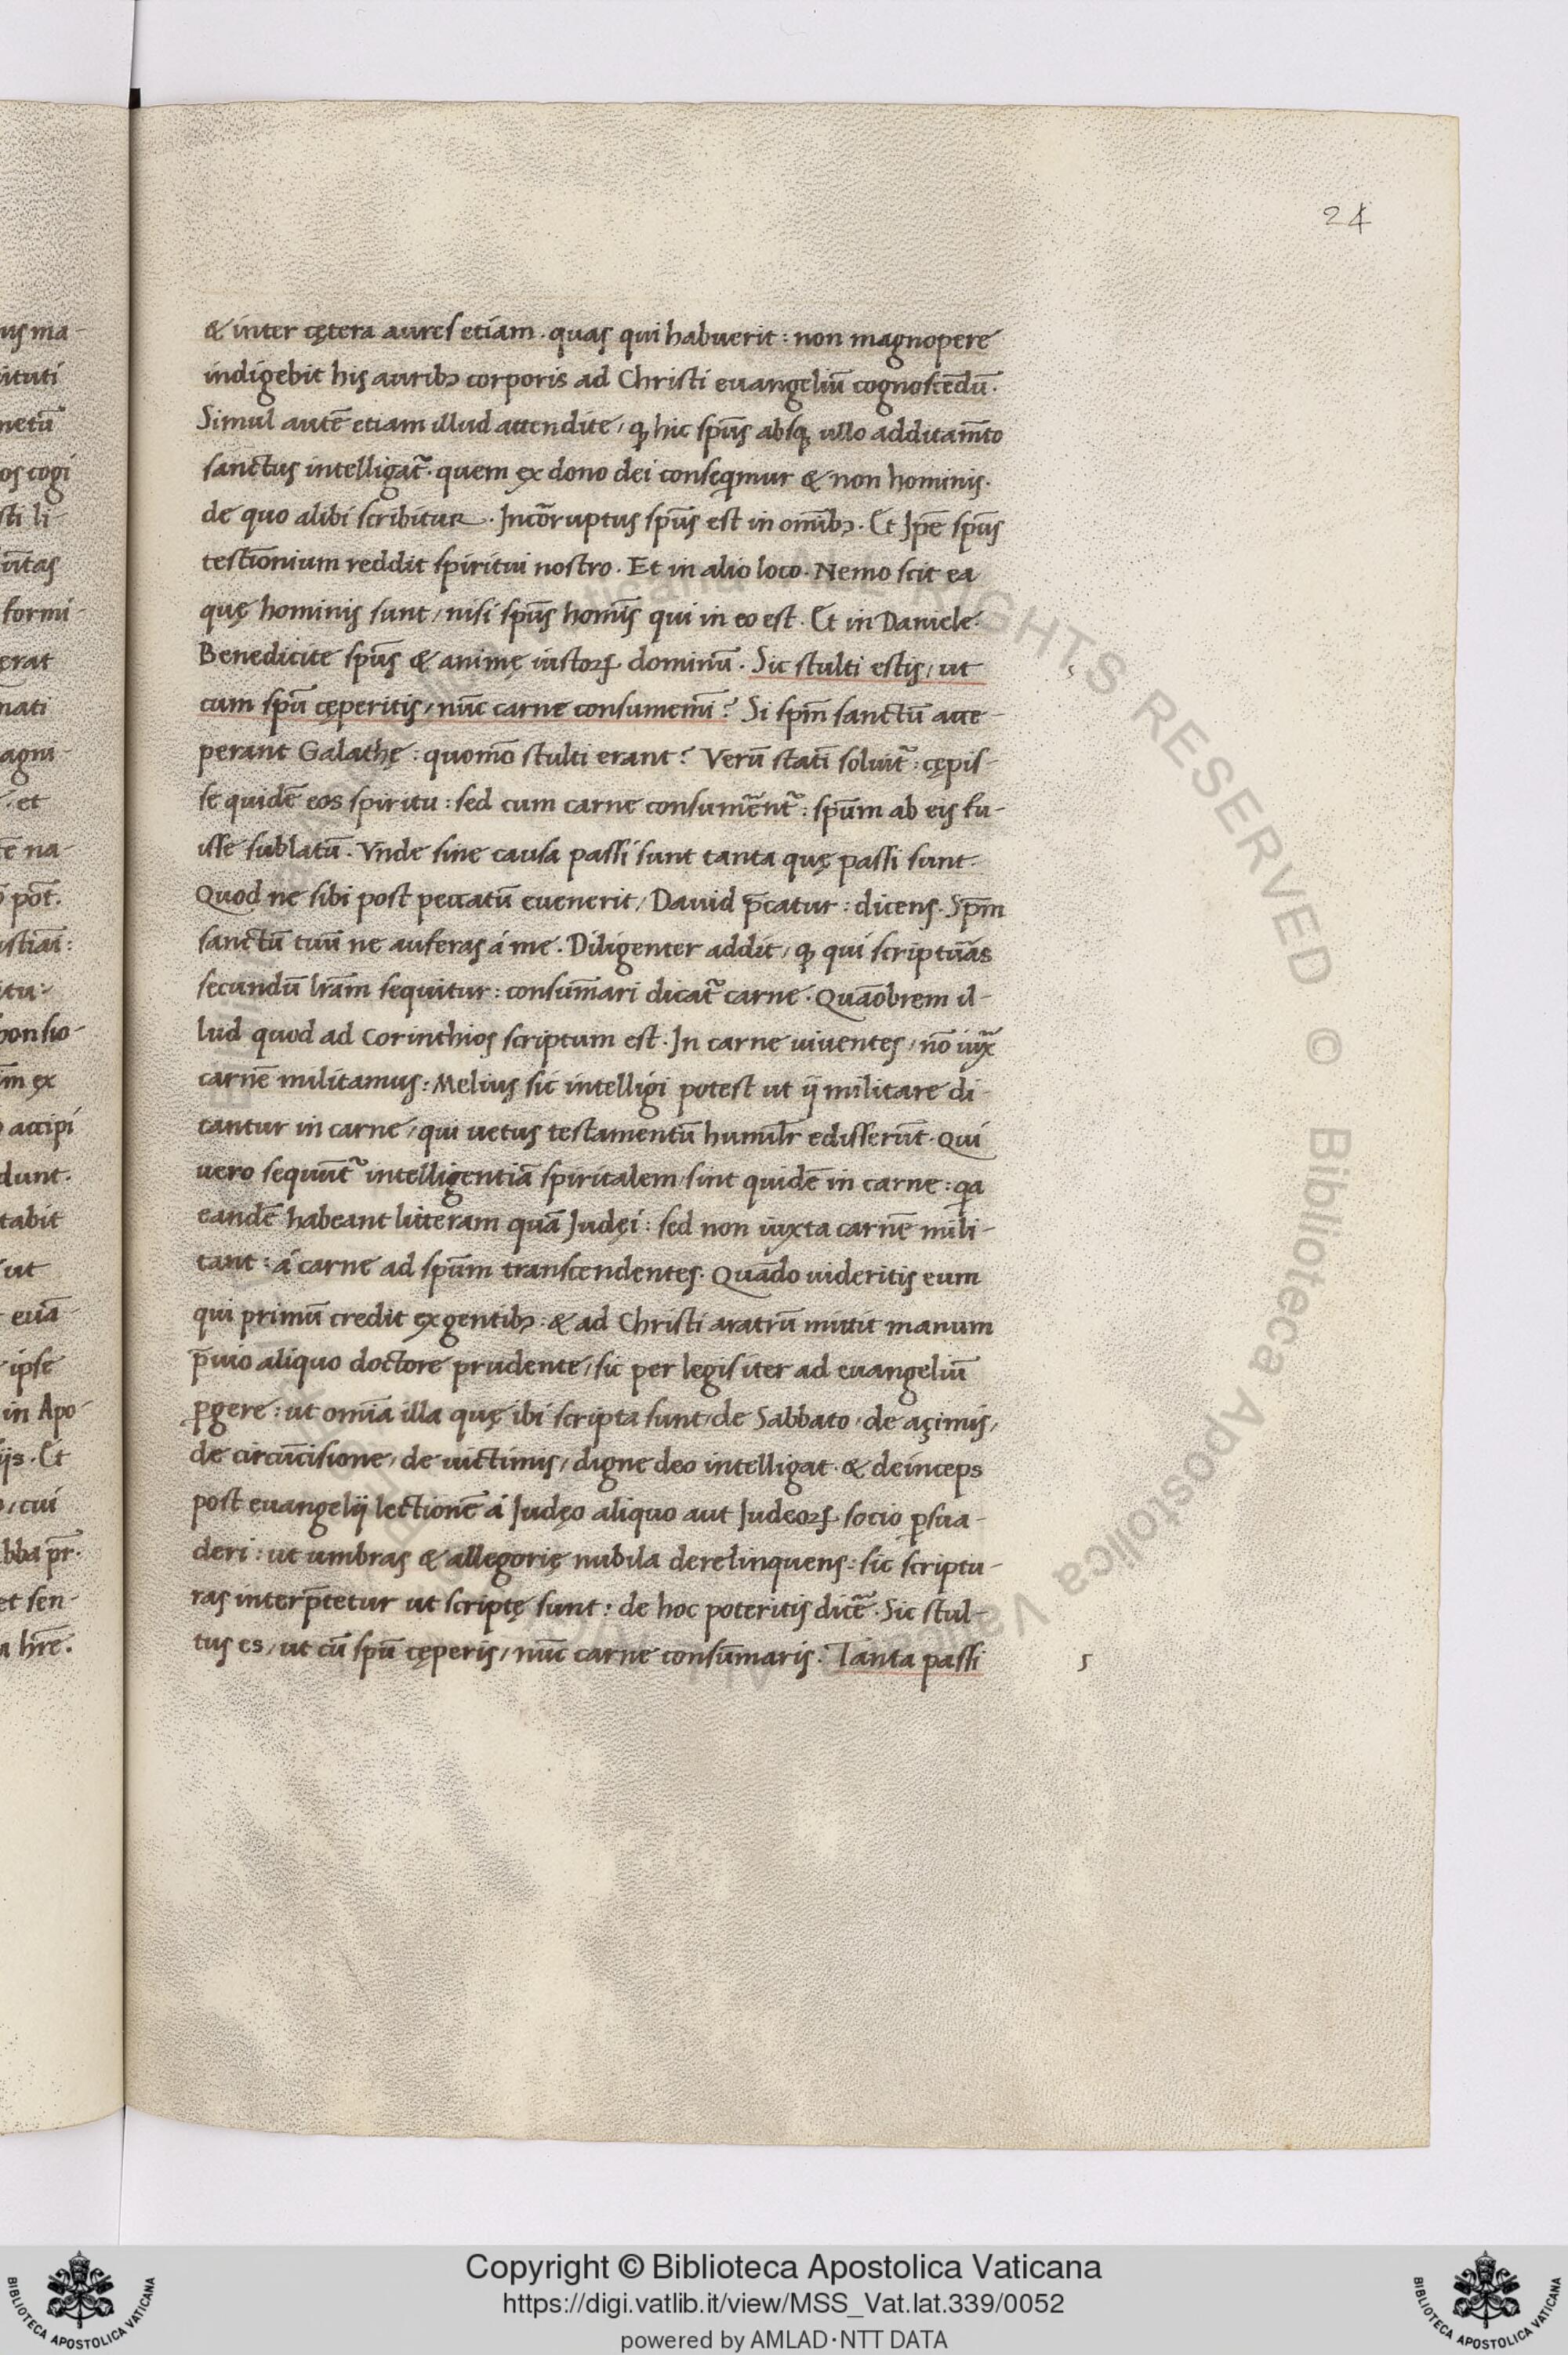 24
& inter cętera aures etiam. quas qui habuerit: non magnopere
indigebit his auribꝫ corporis ad Christi euangeliū cognoscēdū.
Simul autē etiam illud attendite, ꝙ hic sp̄us absꝗ ullo additam̄to
sanctus intelligat᷑. quem ex dono dei conseqmur & non hominis.
de quo alibi scribitur. Incōruptus sp̄us est in om̄ibꝫ. Et Ip̄e sp̄us
testīonium reddit spiritui nostro. Et in alio loco. Nemo scit ea
quę hominis sunt, nisi sp̄us homīs qui in eo est. Et in Daniele.
Benedicite sp̄us & animę iustoꝝ dominū. Sic stulti estis, ut
cum spū cęperitis, nūc carne consumemī? Si sp̄m sanctū acce-
perant Galathę: quom̄o stulti erant? Verū statī soluit᷑: cępis-
se quidē eos spiritu: sed cum carne consumēnt᷑: sp̄um ab eis fu-
isse sublatū. Vnde sine causa passi sunt tanta quę passi sunt.
Quod ne sibi post peccatū euenerit, Dauid p̄catur: dicens. Sp̄m
sanctū tuū ne auferas á me. Diligenter addit, ꝙ qui scriptūas
secundū lr̄am sequitur: consūmari dicat᷑ carne. Quāobrem il-
lud quod ad Corinthios scriptum est. In carne uiuentes, nō iux̄
carnē militamus: Melius sic intelligi potest ut ij militare di-
cantur in carne, qui uetus testamentū humilr̄ edisserūt. Qui
uero sequūt᷑ intelligentiā spiritalem, sint quidē in carne: qa
eandē habeant litteram quā Iudęi: sed non iuxta carnē mili-
tant: á carne ad sp̄um transcendentes. Quādo uideritis eum
qui primū credit ex gentibꝫ. & ad Christi aratrū mittit manum
p̄uio aliquo doctore prudente, sic per legis iter ad euangeliū
ꝑgere: ut omīa illa quę ibi scripta sunt, de Sabbato, de açimis,
de circūcisione, de uictimis, digne deo intelligat. & deinceps
post euangelij lectionē á Iudęo aliquo aut Iudeoꝝ socio ꝑsua-
deri: ut umbras & allegorię nubila derelinquens: sic scriptu-
ras interp̄tetur ut scriptę sunt: de hoc poteritis dicē. Sic stul-
tus es, ut cū spū cęperis, nūc carne consūmaris. Tanta passi
Copyright © Biblioteca Apostolica Vaticana
https://digi.vatlib.it/view/MSS_Vat.lat.339/0052
powered by AMLAD·NTT DATA